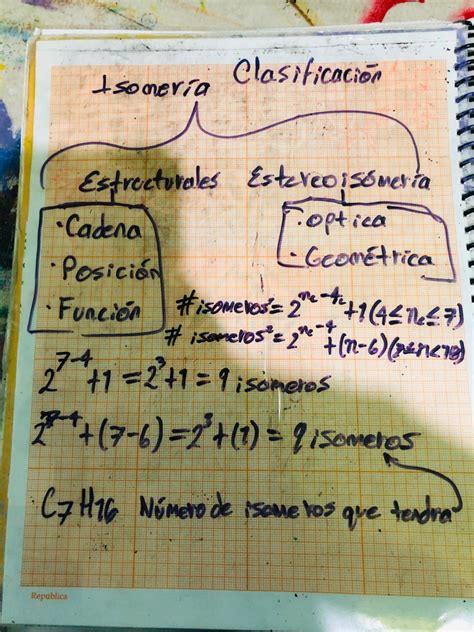 Isomería Clasificación
Estructurales Estereoisómería
· Cadena
· Posición
· Función
· Optica
· Geométrica
# isomeros = 2^(nc-4) + 1 (4 ≤ nc ≤ 7)
# isomeros = 2^(nc-4) + (n-6)
2^(7-4) + 1 = 2^3 + 1 = 9 isomeros
2^(7-4) + (7-6) = 2^3 + (1) = 9 isomeros
C7H16 Número de isomeros que tendra
República